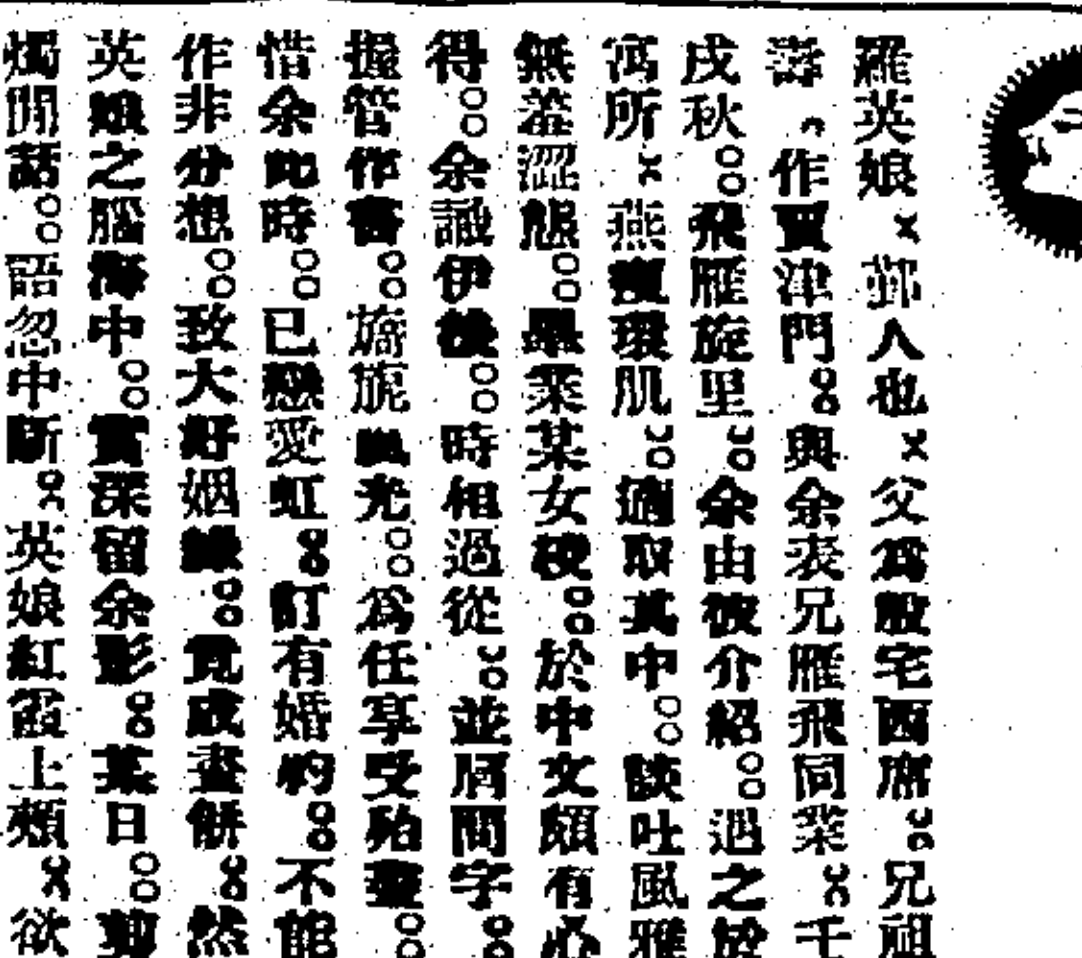 羅英娘。鄞人也。父爲殷宅西席。兄祖
壽。作賈津門。與余表兄雁飛同業。壬
戌秋。飛雁旋里。余由彼介紹。遇之於
寓所。燕瘦環肌。適取其中。談吐風雅
無羞澀態。畢業某女校。於中文頗有心
得。余識伊後。時相過從。並肩問字。
握管作書。旖旎風光。爲任享受殆盡。
惜余此時。已懸愛虹。訂有婚約。不能
作非分想。致大好姻緣。竟成畫餅。然
英娘之腦海中。實深留余影。某日。剪
燭閒話。語忽中斷。英娘紅霞上頰。欲